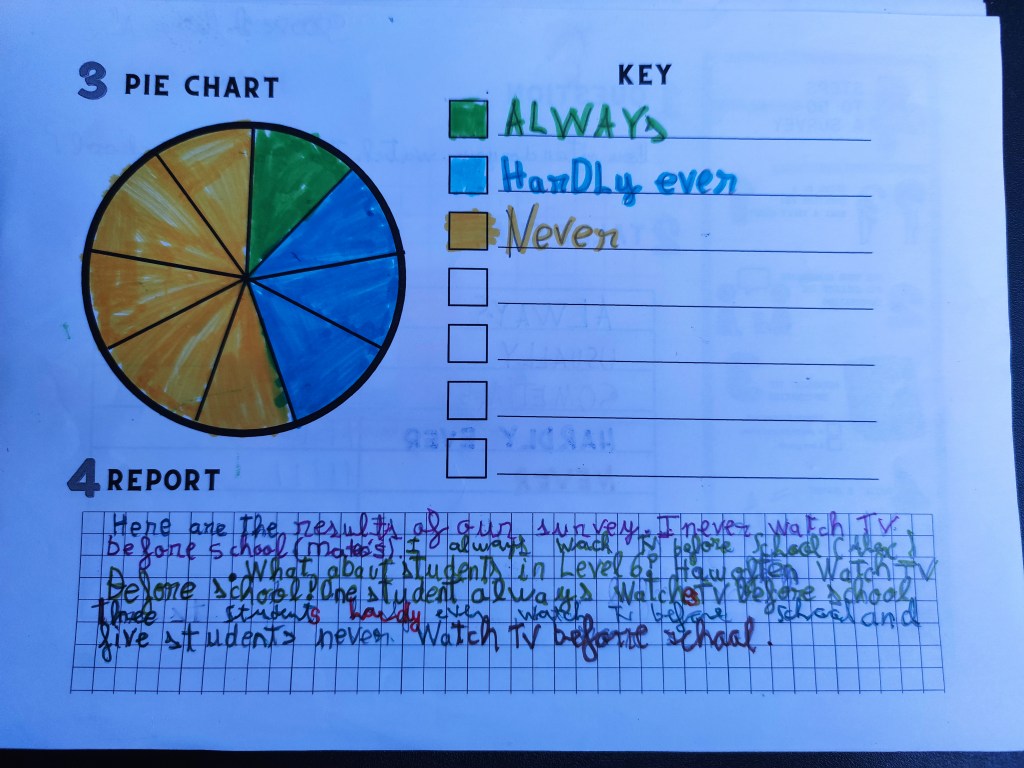 3 PIE CHART
KEY
ALWAYs
HarDLy ever
Never
4 REPORT
Here are the results of our survey. I never watch TV
before school (Mateo's). I always wach tv before school
. What about students in Level 6? How often Watch TV
Before school? One student always Watches TV Before school
three students hardy ever watch tv before school and
five students never Watch TV before school.